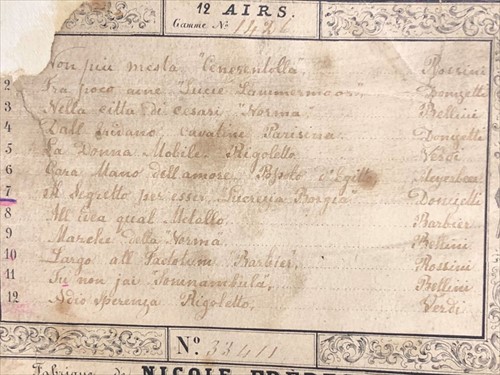 12 AIRS.
Gamme No 1456
Non piu mesta "Cenerentolla" Rossini
2 Fra poco ame "Lucie Lammermoor" Donizetti
3 Nella citta di Cesari "Norma" Bellini
4 Dall Cavatine Parisina Donizetti
5 La Donna Mobile Rigoletto Verdi
6 Cara Mano dell amore d'Egitto Meyerbeer
7 Il Segretto per esser "Lucrecia Borgia" Donizetti
8 All idea qual Metallo Barbier
9 Marche della "Norma" Bellini
10 Largo all Factotum Barbier Rossini
11 Somnambula Bellini
12 Adio Sperenza Rigoletto Verdi
No 33411
Fabrique de NICOLE